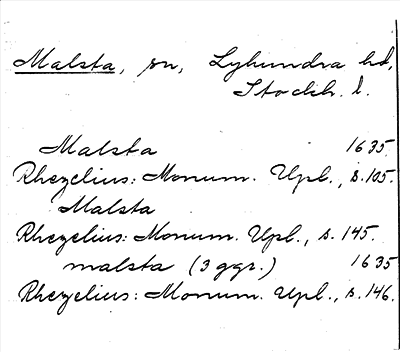 Malsta, sn, Lyhundra hd,
Stockh. l.
Malsta 1635.
Rhezelius: Monum. Upl., s. 105.
Malsta
Rhezelius: Monum. Upl., s. 145.
malsta (3 ggr.) 1635
Rhezelius: Monum. Upl., s. 146.